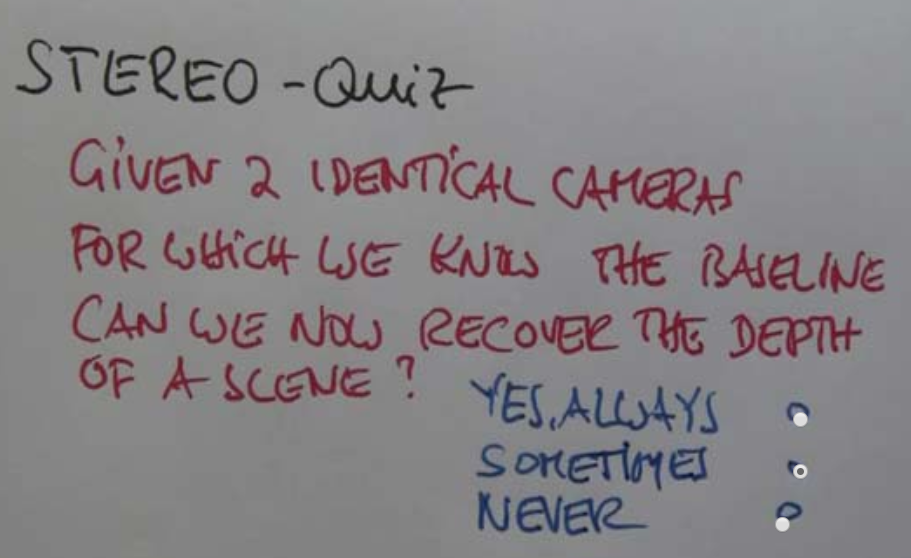 STEREO - QUiZ
GiVEN 2 IDENTiCAL CAMERAS
FOR WHiCH WE KNOW THE BASELINE
CAN WE NOW RECOVER THE DEPTH
OF A SCENE ?
YES, ALWAYS
SOMETIMES
NEVER